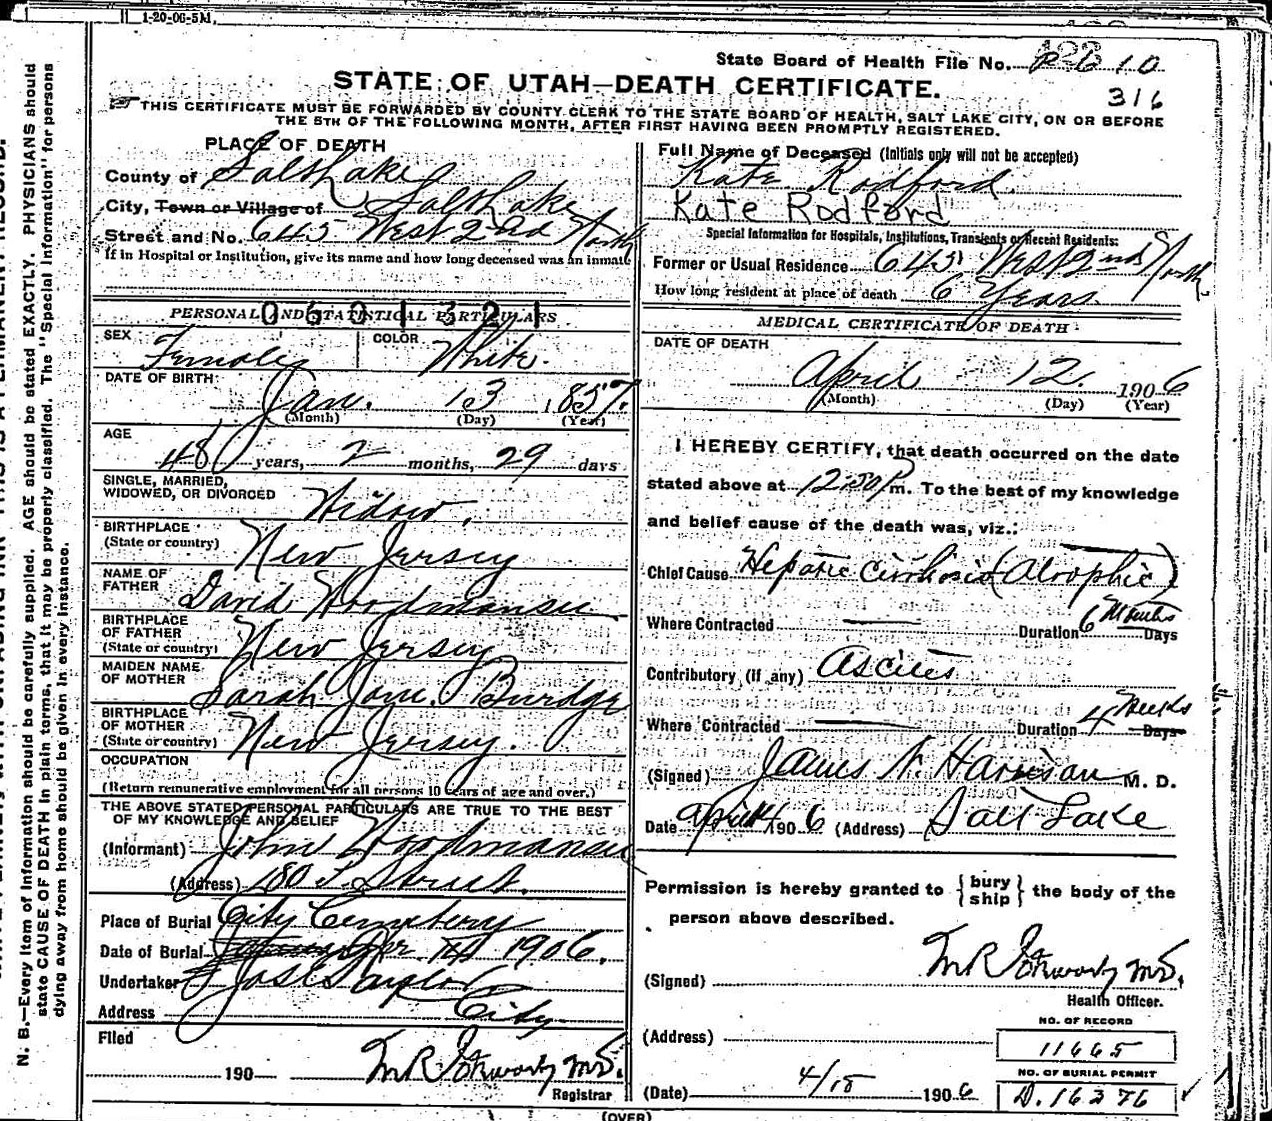 1-20-06-5M.
State Board of Health File No. 10
316
STATE OF UTAH—DEATH CERTIFICATE.
THIS CERTIFICATE MUST BE FORWARDED BY COUNTY CLERK TO THE STATE BOARD OF HEALTH, SALT LAKE CITY, ON OR BEFORE
THE 5TH OF THE FOLLOWING MONTH, AFTER FIRST HAVING BEEN PROMPTLY REGISTERED.
PLACE OF DEATH
County of Salt Lake
City, Town or Village of Salt Lake
Street and No. 645 West 2nd North
If in Hospital or Institution, give its name and how long deceased was an inmate
0601321
PERSONAL AND STATISTICAL PARTICULARS
SEX Female COLOR White.
DATE OF BIRTH
Jan. 13 1857.
(Month) (Day) (Year)
AGE
48 years, 2 months, 29 days
SINGLE, MARRIED,
WIDOWED, OR DIVORCED Widow.
BIRTHPLACE
(State or country) New Jersey
NAME OF
FATHER David Woodmansee
BIRTHPLACE
OF FATHER
(State or country) New Jersey
MAIDEN NAME
OF MOTHER Sarah Jane Burdge
BIRTHPLACE
OF MOTHER
(State or country) New Jersey.
OCCUPATION
(Return remunerative employment for all persons 10 years of age and over.)
THE ABOVE STATED PERSONAL PARTICULARS ARE TRUE TO THE BEST
OF MY KNOWLEDGE AND BELIEF
(Informant) John Woodmansee
(Address) 180 Street.
Place of Burial City Cemetery
Date of Burial Apr. 14 1906.
Undertaker Jos E Taylor
Address City
Filed
190 M.D.
Registrar
Full Name of Deceased (Initials only will not be accepted)
Kate Rodford.
Kate Rodford
Special Information for Hospitals, Institutions, Transients or Recent Residents:
Former or Usual Residence 645 West 2nd North
How long resident at place of death 6 Years.
MEDICAL CERTIFICATE OF DEATH
DATE OF DEATH
April 12. 1906
(Month) (Day) (Year)
I HEREBY CERTIFY, that death occurred on the date
stated above at 12:30 P m. To the best of my knowledge
and belief cause of the death was, viz.:
Chief Cause Hepatic Cirrhosis (Atrophic)
Where Contracted — Duration 6 Months Days
Contributory (if any) Ascites
Where Contracted — Duration 4 Weeks Days
(Signed) James N. Harrison M. D.
Date April 14 1906 (Address) Salt Lake
Permission is hereby granted to {bury ship} the body of the
person above described.
(Signed) M.D.
Health Officer.
(Address)
NO. OF RECORD
11665
NO. OF BURIAL PERMIT
(Date) 4/15 1906 D. 16376
(OVER)
N. B.—Every item of information should be carefully supplied. AGE should be stated EXACTLY. PHYSICIANS should
state CAUSE OF DEATH in plain terms, that it may be properly classified. The "Special Information" for persons
dying away from home should be given in every instance.